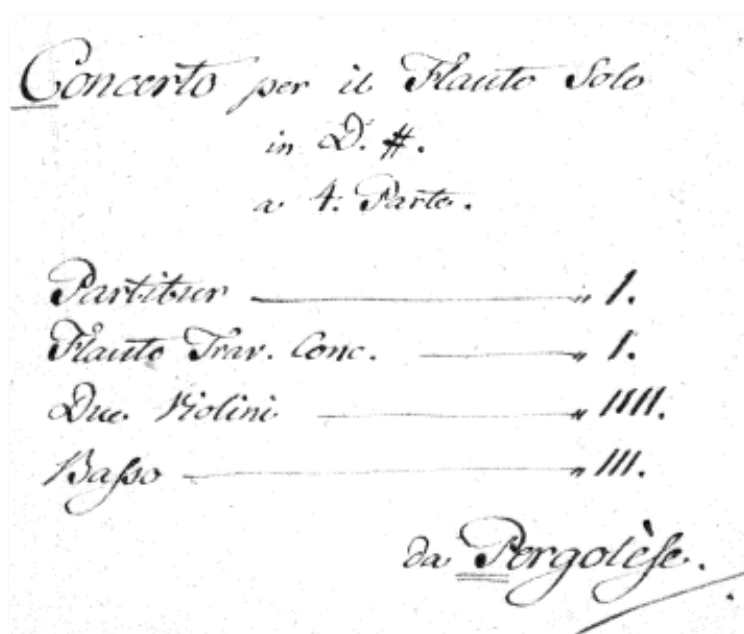 Concerto per il Flauto Solo
in D. #.
a 4. Parte.
Partitur — „ 1.
Flauto Trav. Conc. — „ 1.
Due Violini — „ IIII.
Baſso — „ III.
da Pergolèſe.